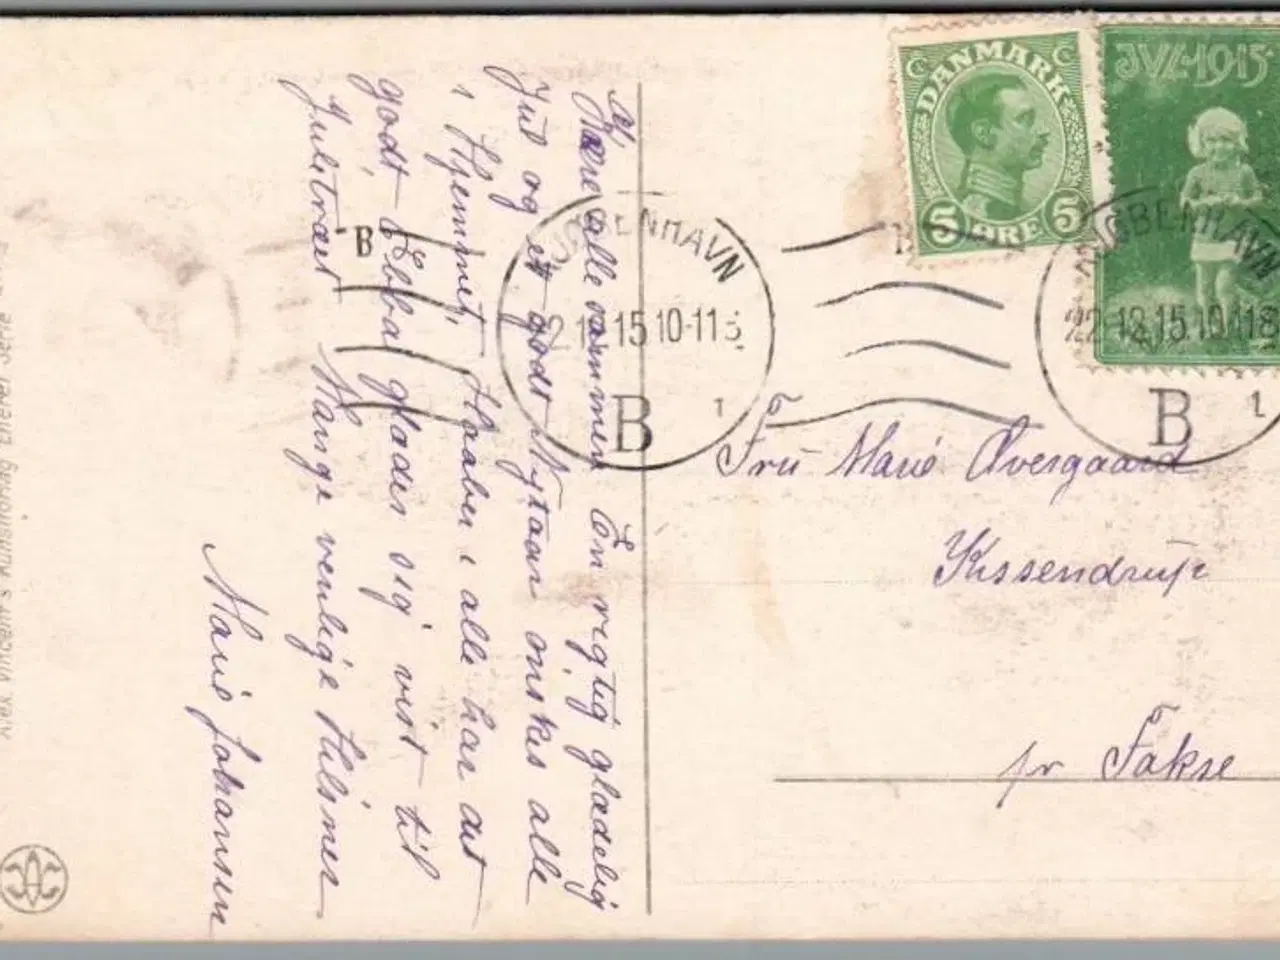 Kjære alle sammen En rigtig glædelig
Jul og et godt Nytaar ønskes alle
i Hjemmet, Haaber i alle har det
godt, Ebba glæder sig vist til
Juletræet Mange venlige Hilsner
Marie Johansen
DANMARK
5 ØRE 5
JUL·1915
KJØBENHAVN
22.12.15.10-11
B
1
B
KJØBENHAVN
22.12.15.10-11
B
1
Fru Marie Overgaard
Kissendrup
pr Fakse
Alex. Vincent's Kunstforlag Eneret Serie